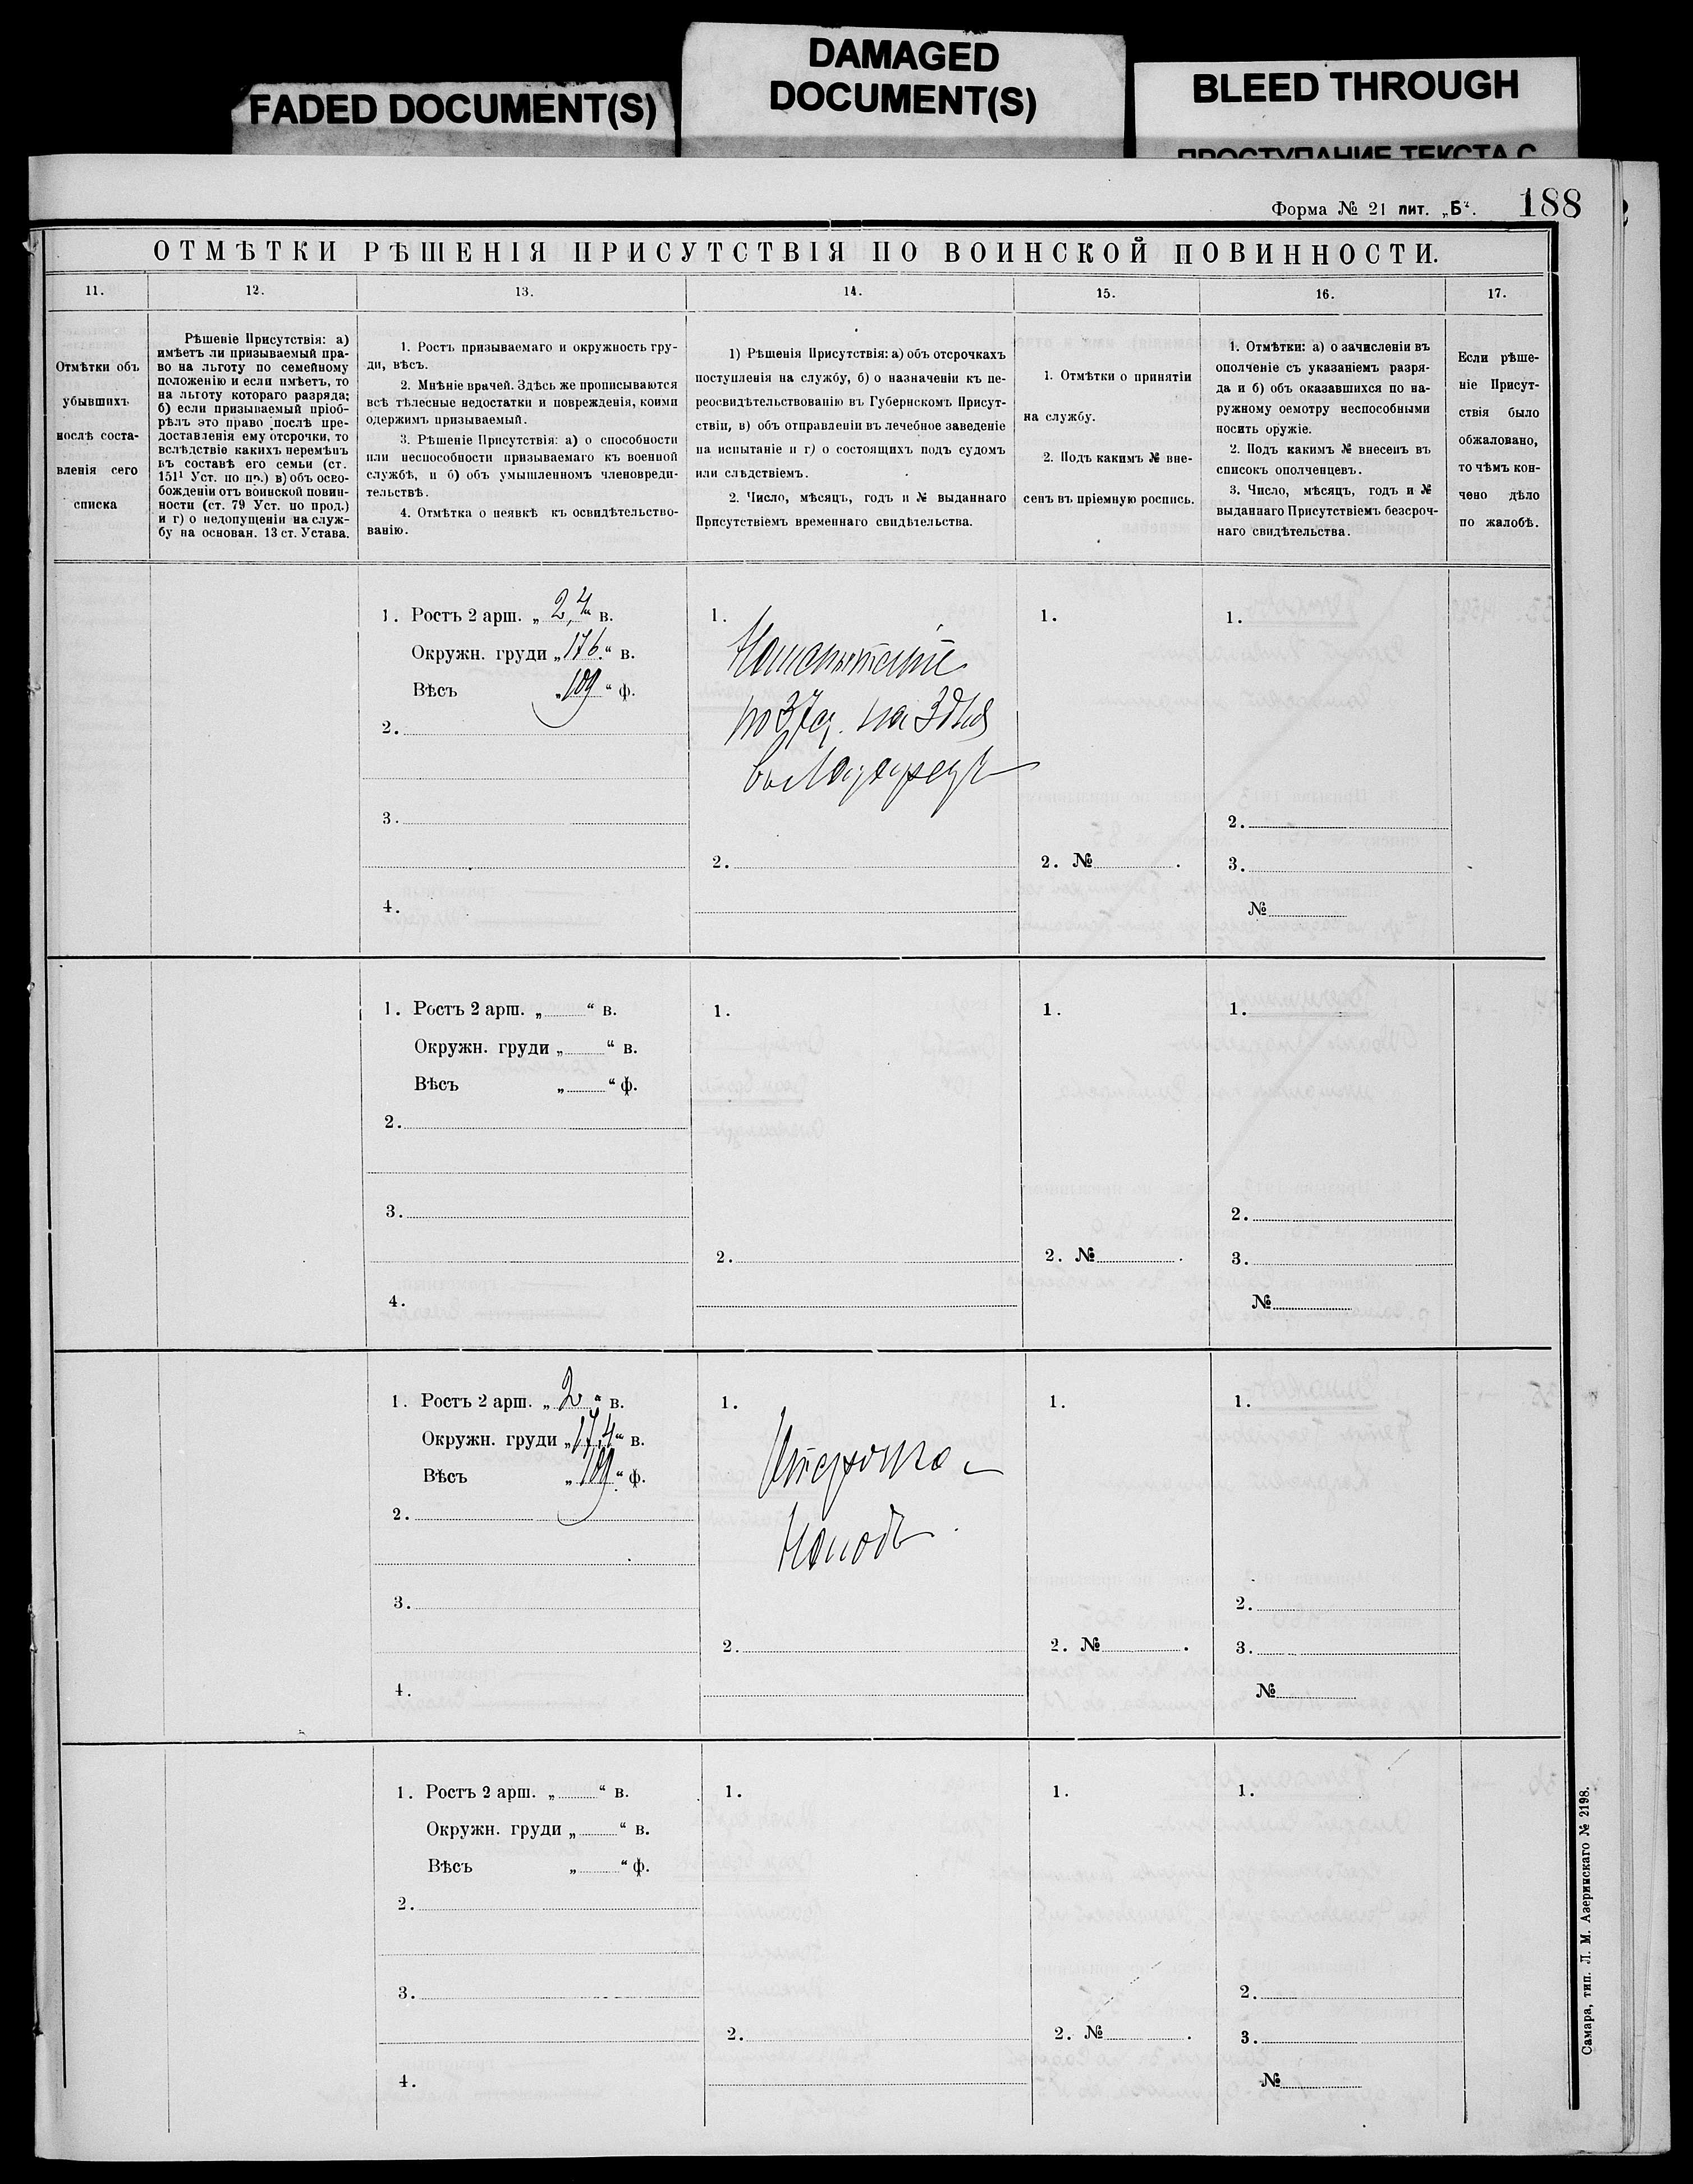 FADED DOCUMENT(S)
DAMAGED
DOCUMENT(S)
BLEED THROUGH
ПРОСТУПАНИЕ ТЕКСТА С
Форма № 21 лит. „Б“.
188
ОТМѢТКИ РѢШЕНІЯ ПРИСУТСТВІЯ ПО ВОИНСКОЙ ПОВИННОСТИ.
11.
12.
13.
14.
15.
16.
17.
Отмѣтки объ
убывшихъ
послѣ соста-
вленія сего
списка
Рѣшеніе Присутствія: а)
имѣетъ ли призываемый пра-
во на льготу по семейному
положенію и если имѣетъ, то
на льготу котораго разряда;
б) если призываемый пріоб-
рѣлъ это право послѣ пре-
доставленія ему отсрочки, то
вслѣдствіе какихъ перемѣнъ
въ составѣ его семьи (ст.
151¹ Уст. по пр.) в) объ осво-
божденіи отъ воинской повин-
ности (ст. 79 Уст. по прод.)
и г) о недопущеніи на служ-
бу на основан. 13 ст. Устава.
1. Ростъ призываемаго и окружность гру-
ди, вѣсъ.
2. Мнѣніе врачей. Здѣсь же прописываются
всѣ тѣлесные недостатки и поврежденія, коими
одержимъ призываемый.
3. Рѣшеніе Присутствія: а) о способности
или неспособности призываемаго къ военной
службѣ, и б) объ умышленномъ членовреди-
тельствѣ.
4. Отмѣтка о неявкѣ къ освидѣтельство-
ванію.
1) Рѣшенія Присутствія: а) объ отсрочкахъ
поступленія на службу, б) о назначеніи къ пе-
реосвидѣтельствованію въ Губернскомъ Присут-
ствіи, в) объ отправленіи въ лечебное заведеніе
на испытаніе и г) о состоящихъ подъ судомъ
или слѣдствіемъ.
2. Число, мѣсяцъ, годъ и № выданнаго
Присутствіемъ временнаго свидѣтельства.
1. Отмѣтки о принятіи
на службу.
2. Подъ какимъ № вне-
сенъ въ пріемную роспись.
1. Отмѣтки: а) о зачисленіи въ
ополченіе съ указаніемъ разря-
да и б) объ оказавшихся по на-
ружному осмотру неспособными
носить оружіе.
2. Подъ какимъ № внесенъ въ
списокъ ополченцевъ.
3. Число, мѣсяцъ, годъ и №
выданнаго Присутствіемъ безсроч-
наго свидѣтельства.
Если рѣше-
ніе Присут-
ствія было
обжаловано,
то чѣмъ кон-
чено дѣло
по жалобѣ.
1. Ростъ 2 арш. „2,4“ в.
Окружн. груди „176.“ в.
Вѣсъ „109“ ф.
2.
3.
4.
1.
На испытаніе
по 37 ст. на 3 дня
въ Лазаретъ
2.
1.
2. №
1.
2.
3.
№
1. Ростъ 2 арш. „ “ в.
Окружн. груди „ “ в.
Вѣсъ „ “ ф.
2.
3.
4.
1.
2.
1.
2. №
1.
2.
3.
№
1. Ростъ 2 арш. „2“ в.
Окружн. груди „17,4“ в.
Вѣсъ „109“ ф.
2.
3.
4.
1.
Отсрочка
на годъ
2.
1.
2. №
1.
2.
3.
№
1. Ростъ 2 арш. „ “ в.
Окружн. груди „ “ в.
Вѣсъ „ “ ф.
2.
3.
4.
1.
2.
1.
2. №
1.
2.
3.
№
Самара, тип. Л. М. Азеринскаго № 2198.